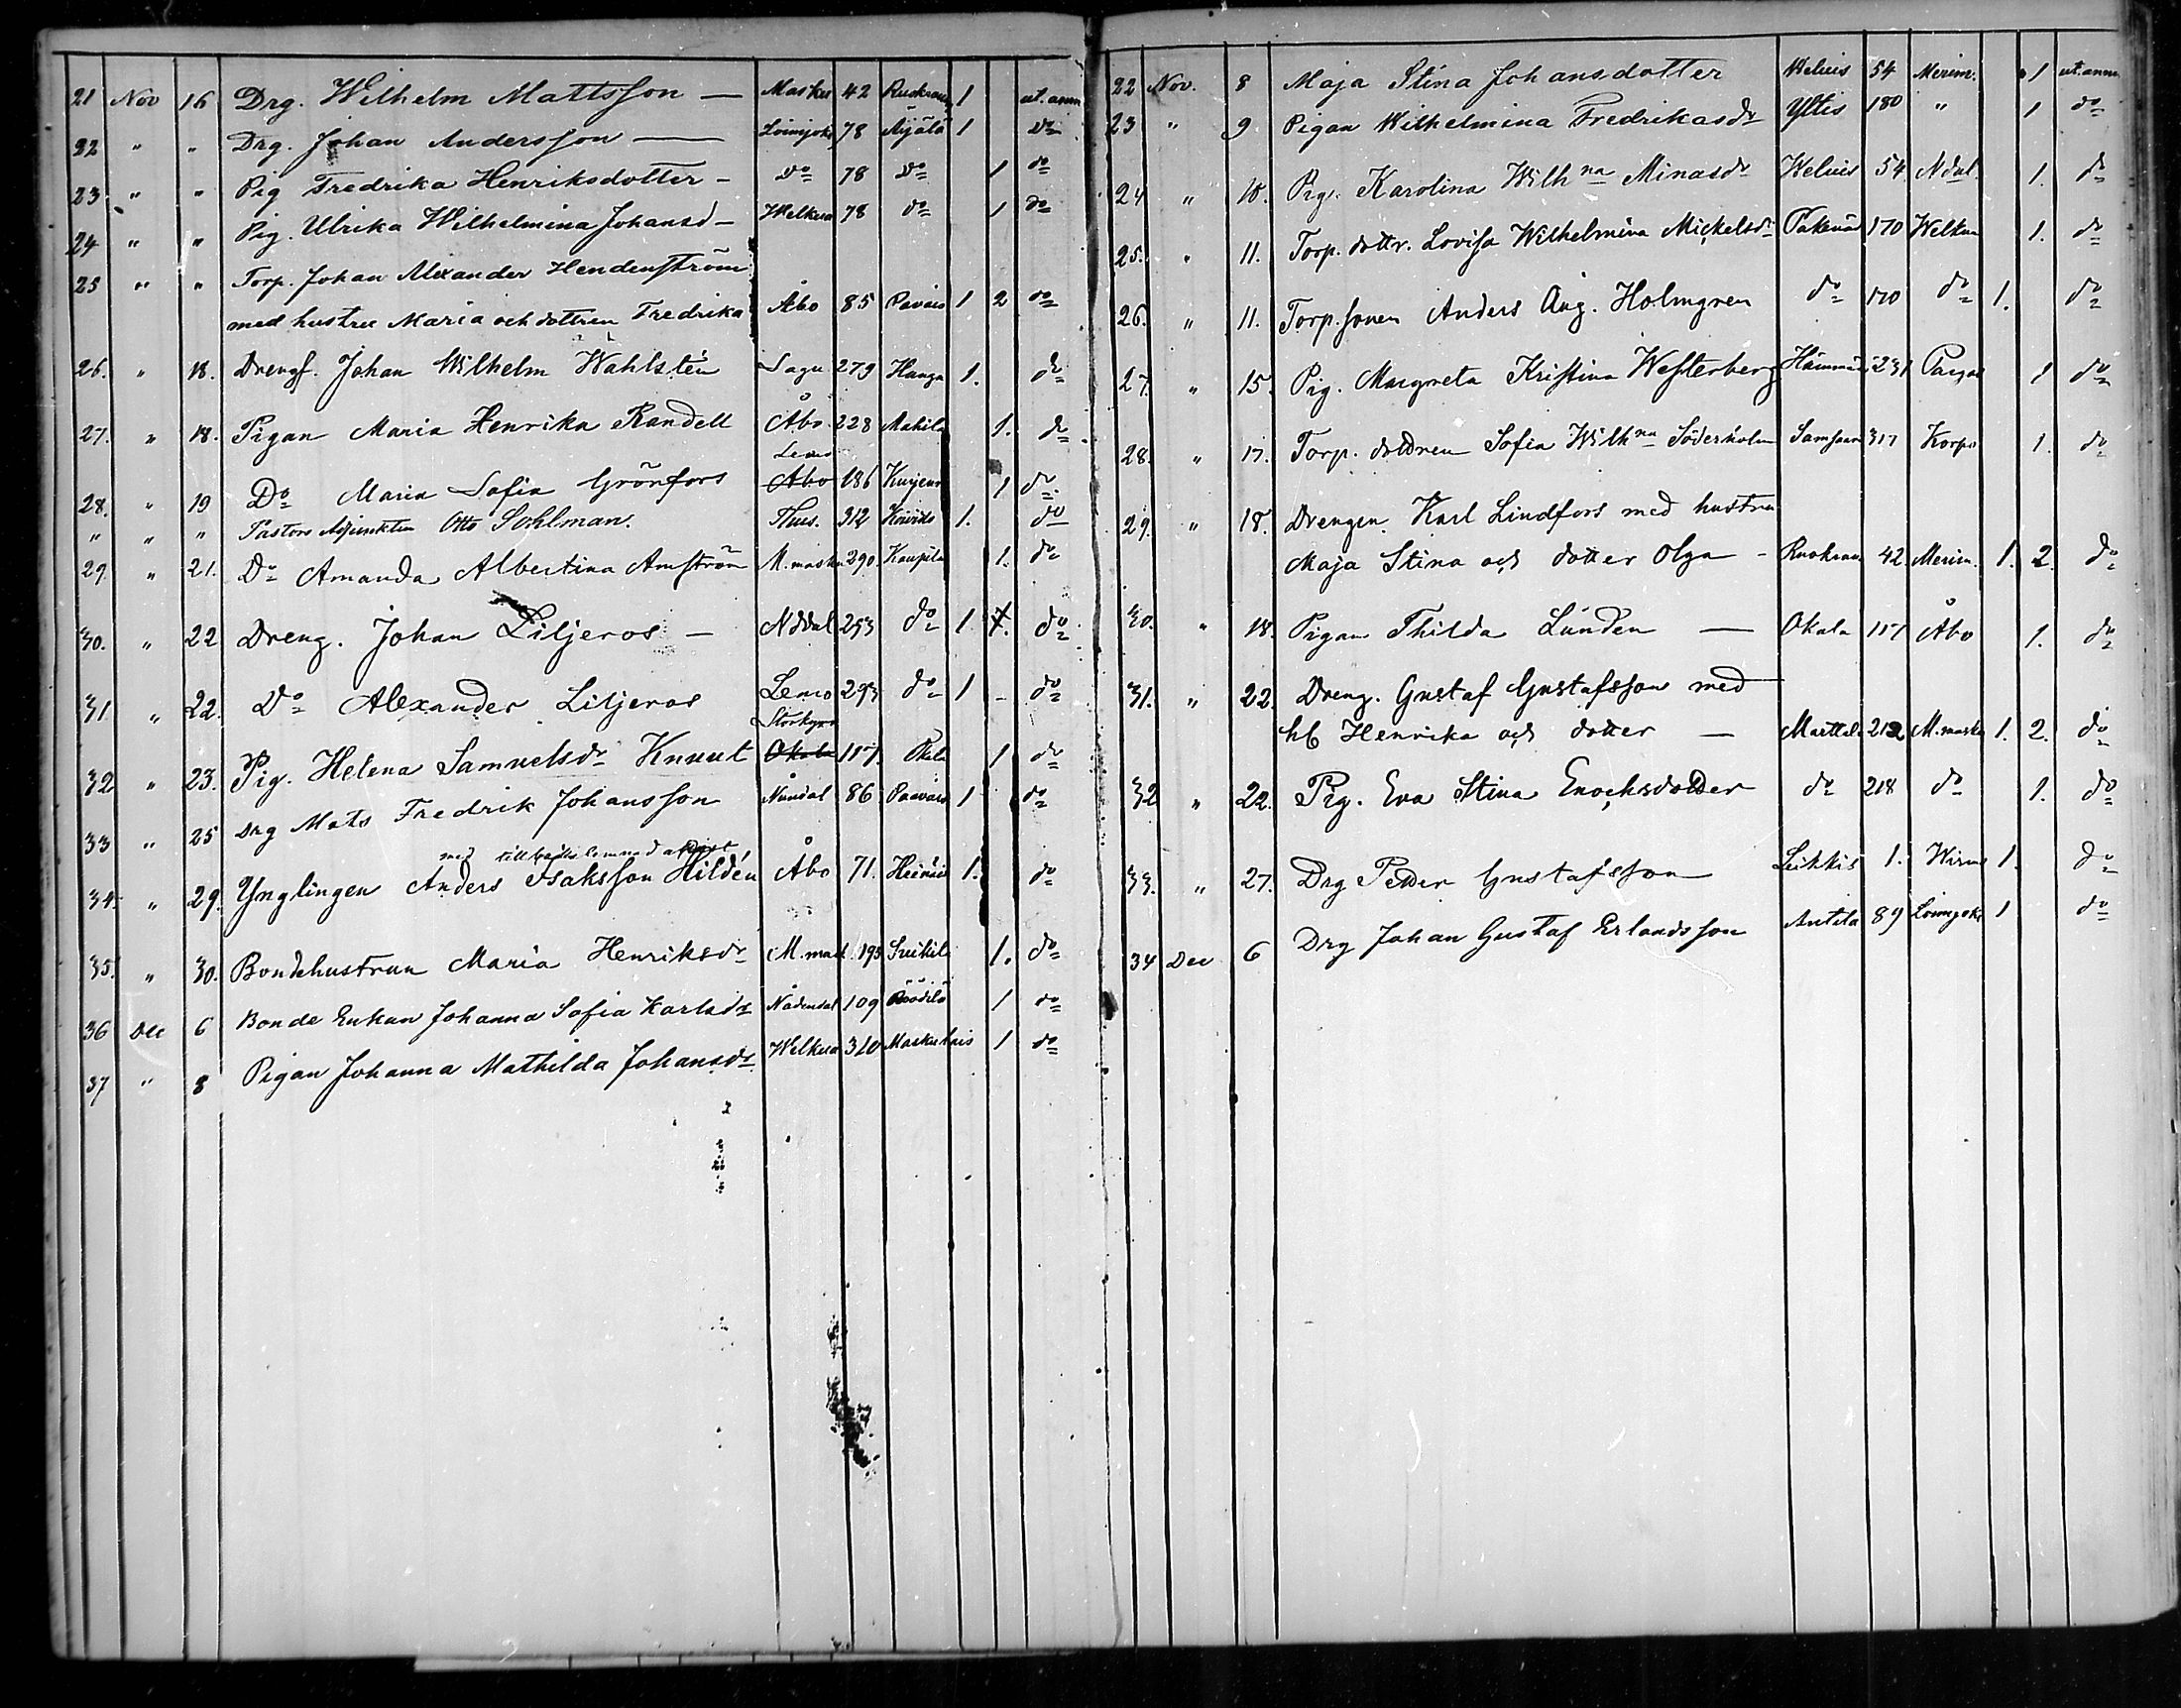 21 Nov 16 Drg. Wilhelm Mattsson — Masku 42 1 ut. anm
22 " " Drg. Johan Andersson — Loimjoki 78 Äijälä 1 do
23 " " Pig Fredrika Henriksdotter - do 78 do 1 do
24 " " Pig. Ulrika Wilhelmina Johansd - Welkua 78 do 1 do
25 " " Torp. Johan Alexander Hendenström
med hustru Maria och dottren Fredrika Åbo 85 Pavais 1 2 do
26. " 18. Drengf. Johan Wilhelm Wahlstén Sagu 279 Hanga 1. do
27. " 18. Pigan Maria Henrika Randell Åbo 228 Mahila 1. do
Lemo
28. " 19 Do Maria Sofia Grönfors Åbo 186 1 do
" " " Pastors Adjunkten Otto Sohlman. Thus. 312 1. do
29 " 21. Do Amanda Albertina Amström M.masku 290. Kaupila 1. do
30. " 22 Dreng. Johan Liljeros — Nddal 253 do 1 1. do
31 " 22. Do Alexander Liljeros Lemo 293 do 1 - do
Storkyro
32 " 23. Pig. Helena Samuelsdr Knuut Okala 117. Okala 1 do
33 " 25 Drg Mats Fredrik Johansson Nåndal 86 Paavais 1 do
med
34. " 29. Ynglingen Anders Isaksson Hildén Åbo 71. 1. do
35. " 30. Bondehustrun Maria Henriksdr M.mask. 195 1. do
36 Dec 6 Bonde Enkan Johanna Sofia Karlsdr Nådendal 109 1 do
37 " 8 Pigan Johanna Mathilda Johansdr Welkua 310 Maskulais 1 do
22 Nov. 8 Maja Stina Johansdotter Weluis 54 Merim. 1 ut. anm.
23 " 9 Pigan Wilhelmina Fredrikasdr Yltis 180 " 1 do
24 " 10. Pig. Karolina Wilhna Minasdr Weluis 54. Ndal. 1. do
25. " 11. Torp. dottr. Lovisa Wilhelmina Mickelsdr 170 Welkua 1. do
26. " 11. Torp. sonen Anders Aug. Holmgren do 170 do 1. do
27. " 15. Pig. Margreta Kristina Westerberg 231 Pargas 1 do
28. " 17. Torp. dottren Sofia Wilhna Söderholm 317 Korpo 1. do
29. " 18. Drengen Karl Lindfors med hustru
Maja Stina och dotter Olga - 42. Merim. 1. 2. do
30. " 18. Pigan Thilda Lundén — Okala 117 Åbo 1. do
31. " 22. Dreng. Gustaf Gustafsson med
h6 Henrika och dotter — Marttala 212 M.masku 1. 2. do
32 " 22. Pig. Eva Stina Enochsdotter do 218 do 1. do
33. " 27. Drg Petter Gustafsson Leikkis 1. Wirmo 1. do
34 Dec 6 Drg Johan Gustaf Erlandsson Anttila 89 Loimjoki 1 do